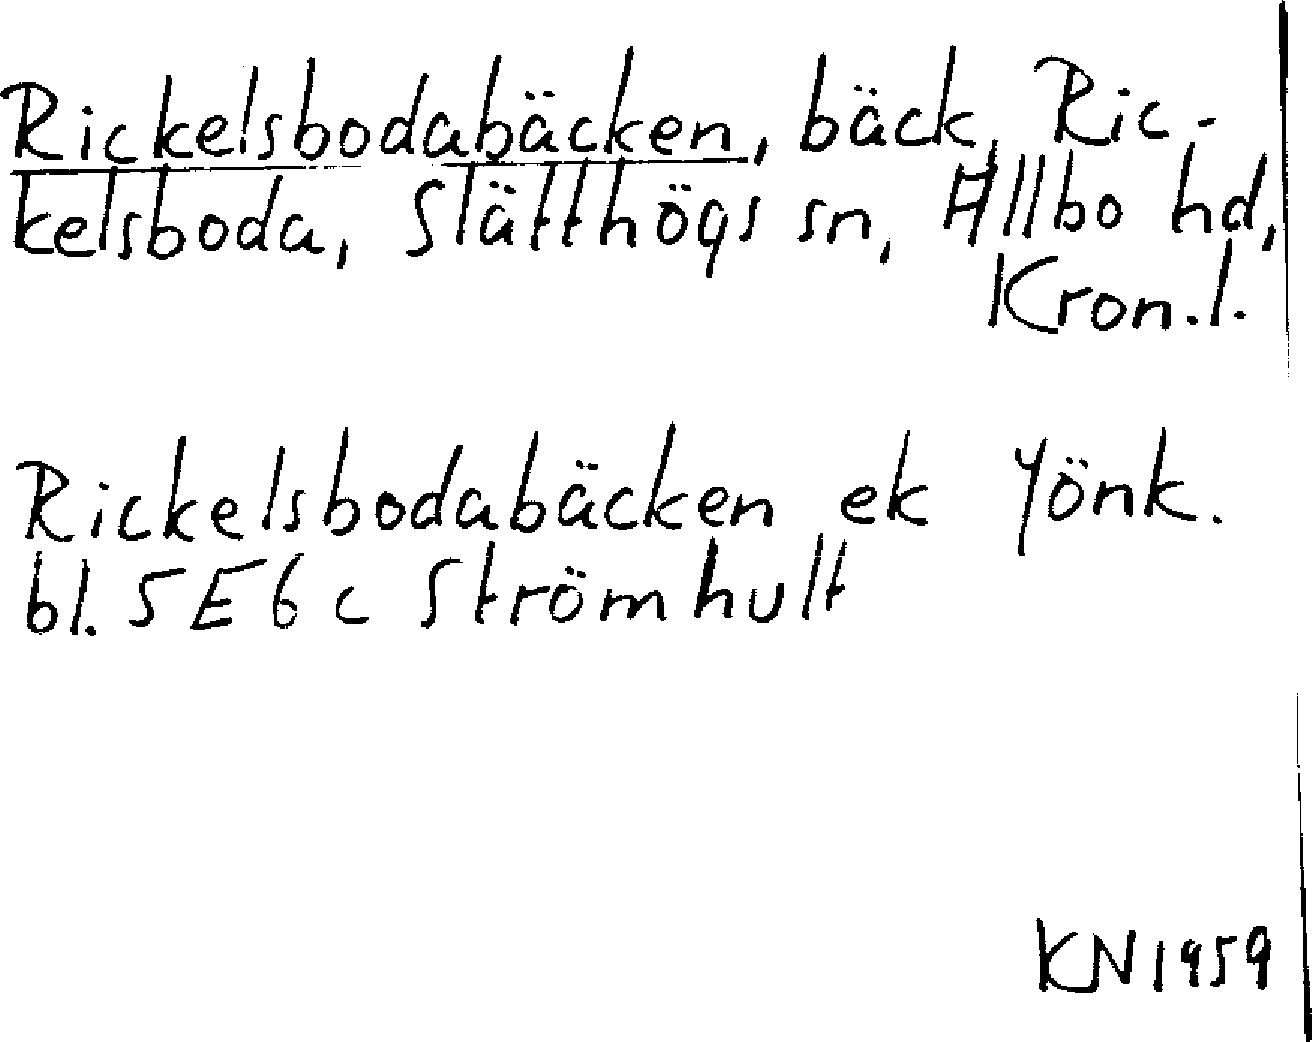 Rickelsbodabäcken, bäck, Ric-
kelsboda, Slätthögs sn, Allbo hd,
Kron.l.
Rickelsbodabäcken ek Jönk.
bl. 5E6c Strömhult
KN1959